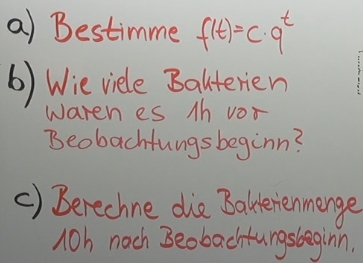 a) Bestimme f(t)=c·q^t
b) Wie viele Bakterien
waren es 1h vor
Beobachtungsbeginn?
c) Berechne die Bakterienmenge
10h nach Beobachtungsbeginn.